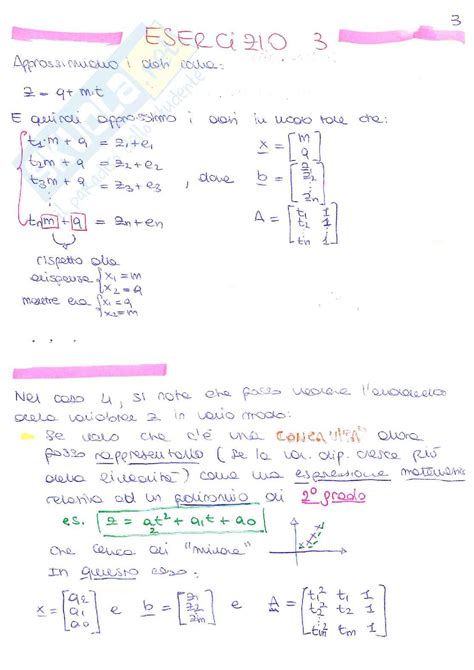 3
ESERCIZIO 3
Approssimiamo i dati come:
z = q + m·t
E quindi approssimo i dati in modo tale che:
t₁·m + q = z₁ + e₁
t₂m + q = z₂ + e₂
t₃m + q = z₃ + e₃ , dove
⋮
tₙ m + q = zₙ + eₙ
x = [m q]
b = [z₁ z₂ ⋮ zₙ]
A = [t₁ 1 t₂ 1 ⋮ tₙ 1]
rispetto alla
dispensa {x₁ = m x₂ = q
mentre era {x₁ = q x₂ = m
. . .
Nel caso 4, si note che posso vedere l'andamento
della variabile z in vario modo:
Se vedo che c'è una CONCAVITÀ allora
posso rappresentarlo (se la var. dip. cresce più
della linearità) come una espressione matematica
relativa ad un polinomio di 2° grado
es. z = a₂t² + a₁t + a₀
che cerca di "minare"
In questo caso:
x = [a₂ a₁ a₀] e b = [z₁ z₂ zₘ] e A = [t₁² t₁ 1 t₂² t₂ 1 ⋮ tₘ² tₘ 1]